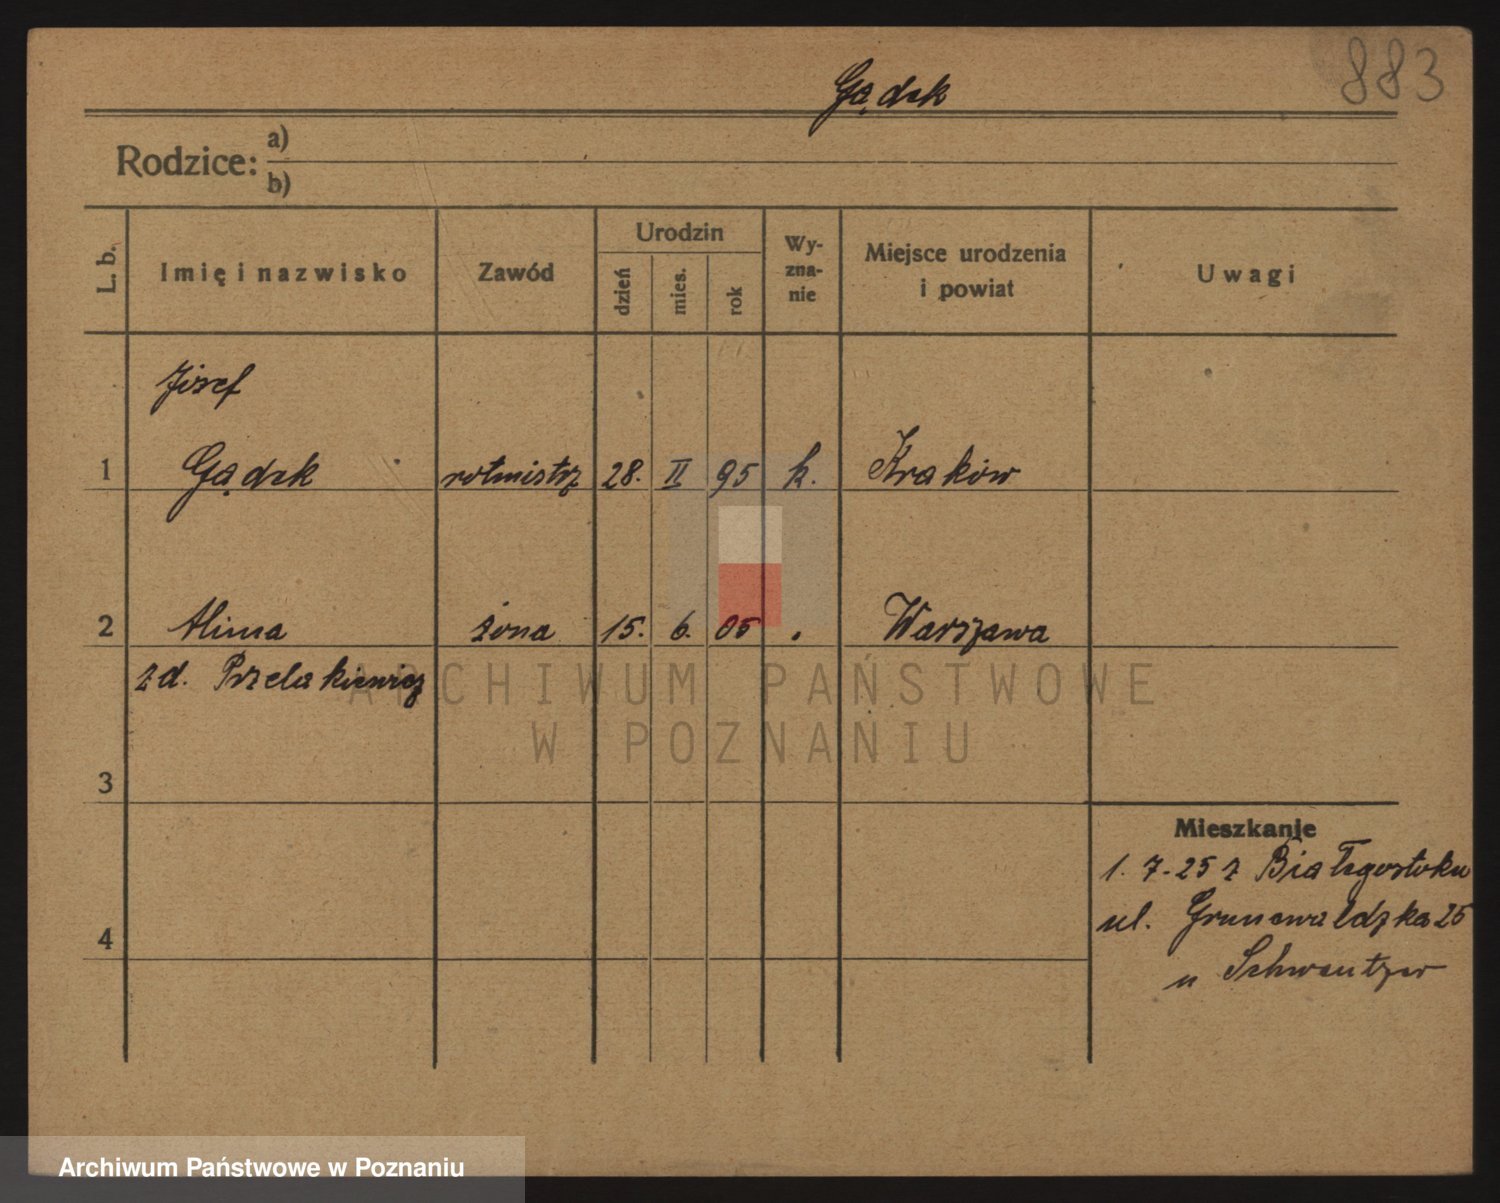 883
Gądek
Rodzice:
a)
b)
L. b.
Imię i nazwisko
Zawód
Urodzin
dzień
mies.
rok
Wy-
zna-
nie
Miejsce urodzenia
i powiat
Uwagi
Józef
1 Gądek rotmistrz 28. II 95 k. Kraków
2 żona 15. 6. 05 Warszawa
zd.
3
4
Mieszkanie
1. 7. 25 z Białegostoku
ul. Grunwaldzka 25
u
ARCHIWUM PAŃSTWOWE
W POZNANIU
Archiwum Państwowe w Poznaniu